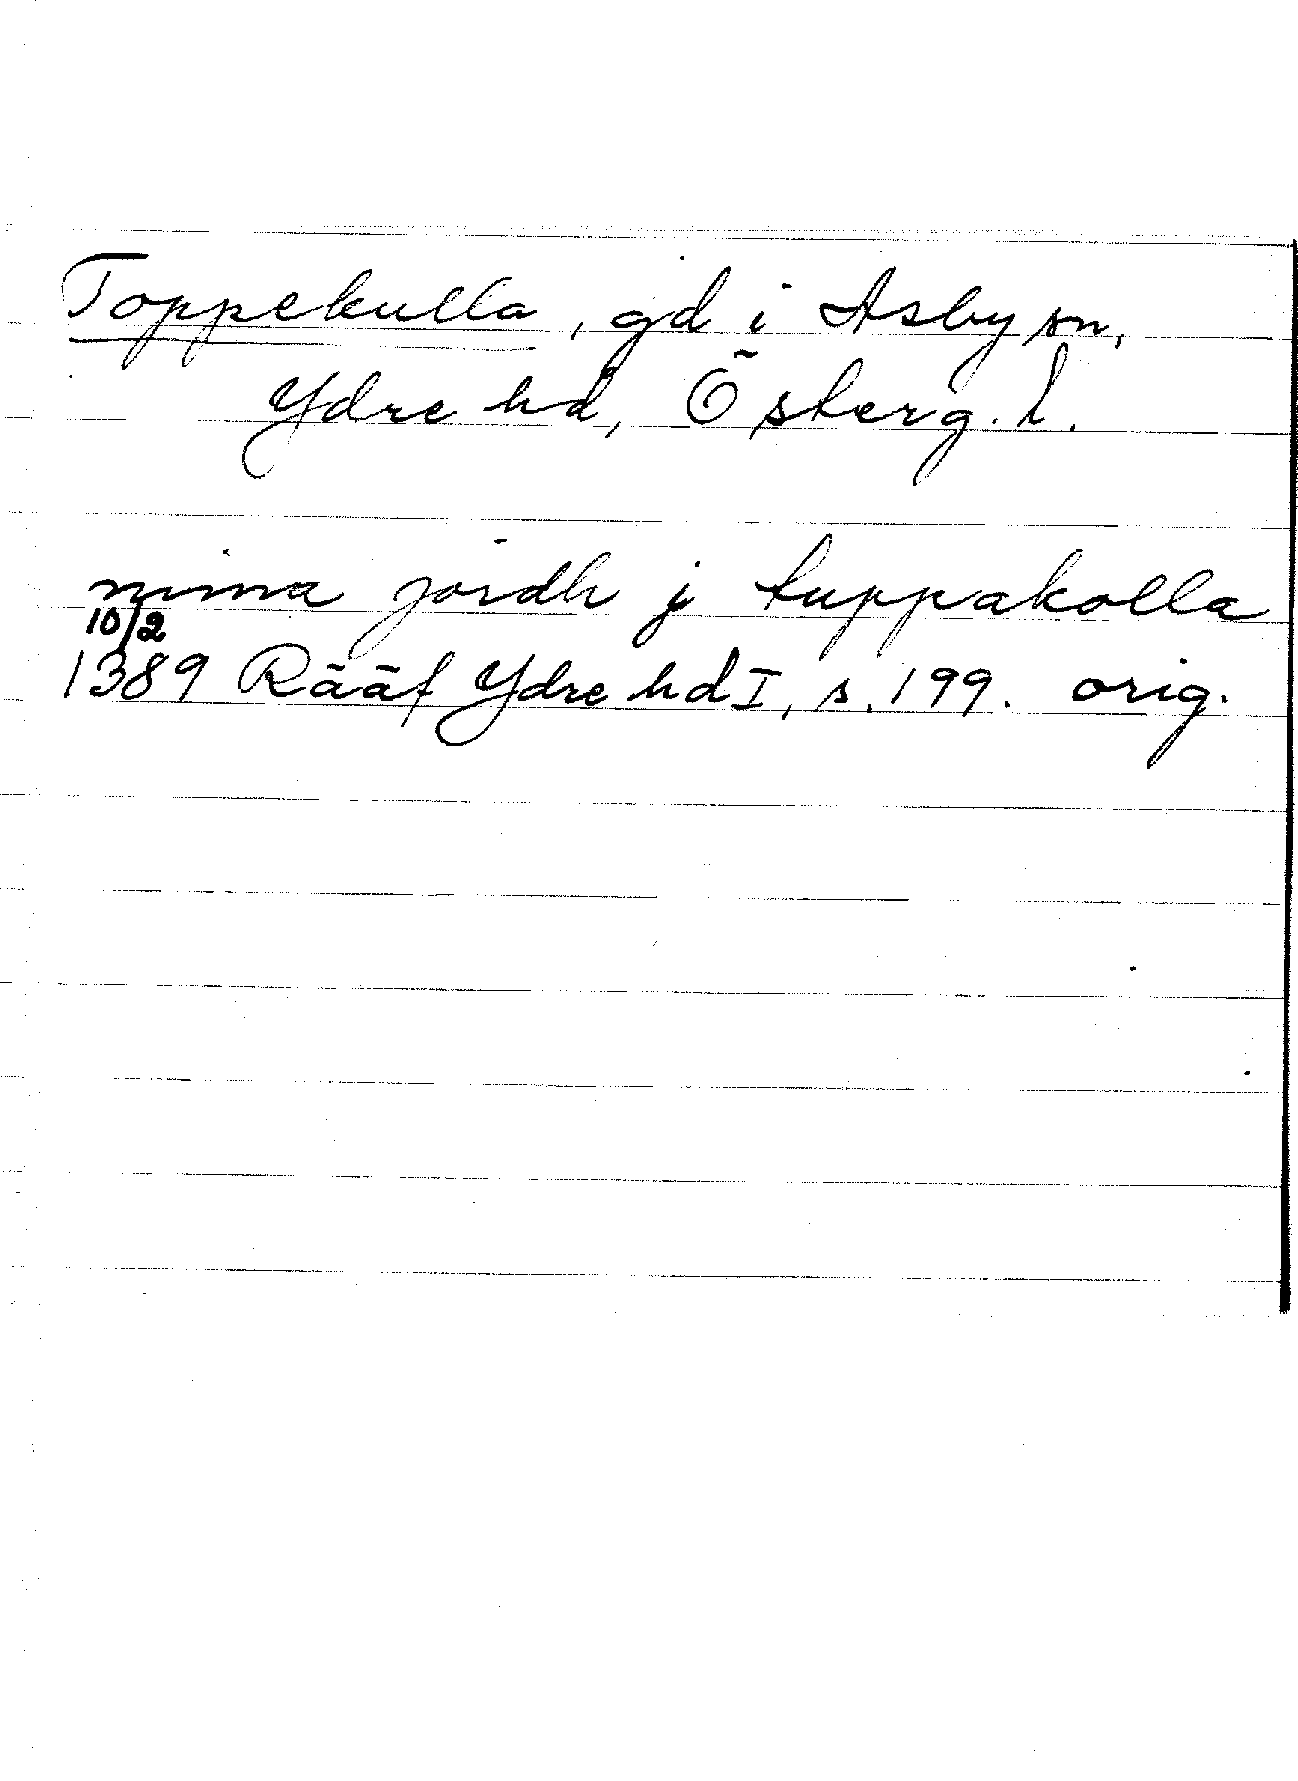 Toppekulla, gd i Asby sn,
Ydre hd, Österg. l.
mina jordh j tuppakolla
10/2
1389 Rääf Ydre hd I, s. 199. orig.